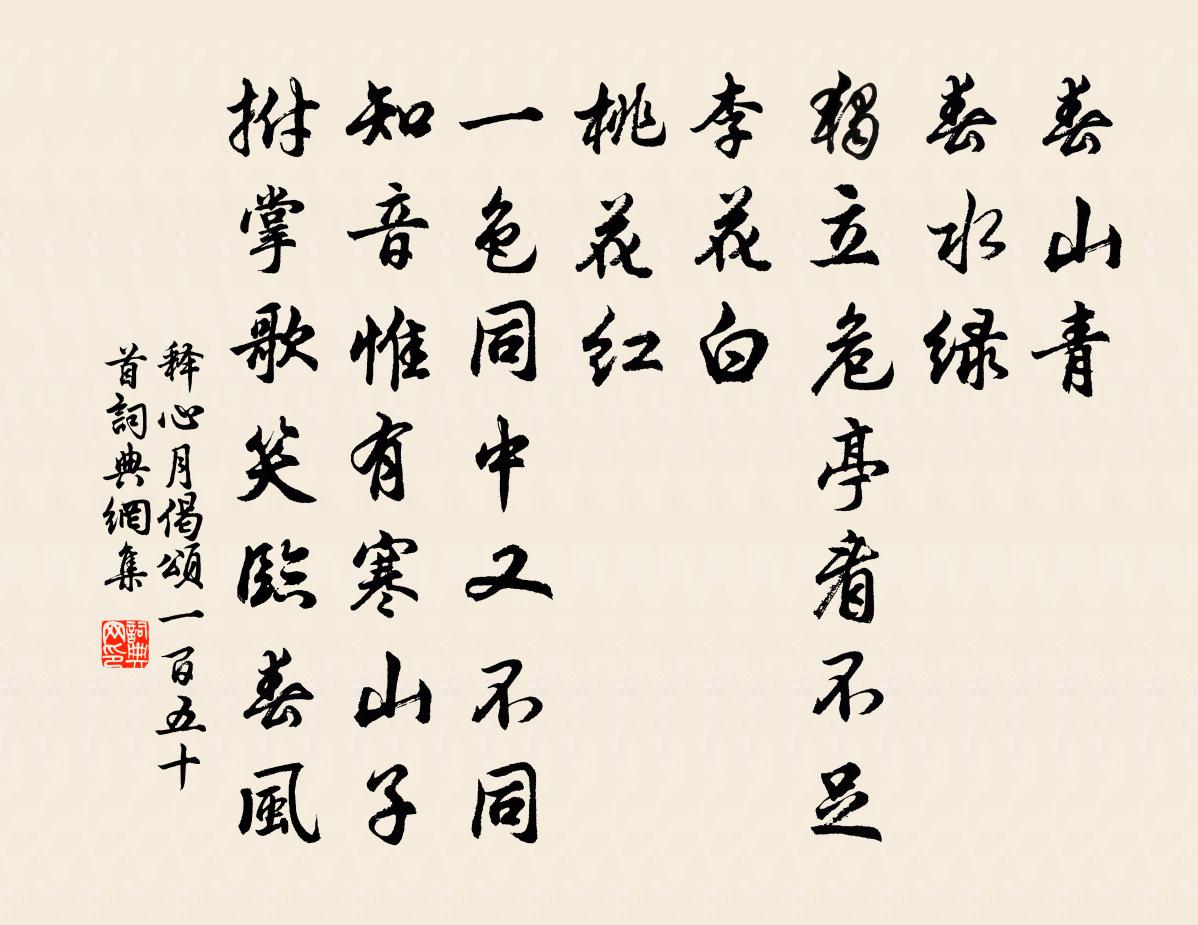 春山青
春水绿
独立危亭看不足
李花白
桃花红
一色同中又不同
知音惟有寒山子
拊掌歌笑臨春風
释心月偈頌一百五十
首詞典網集
詞典网印